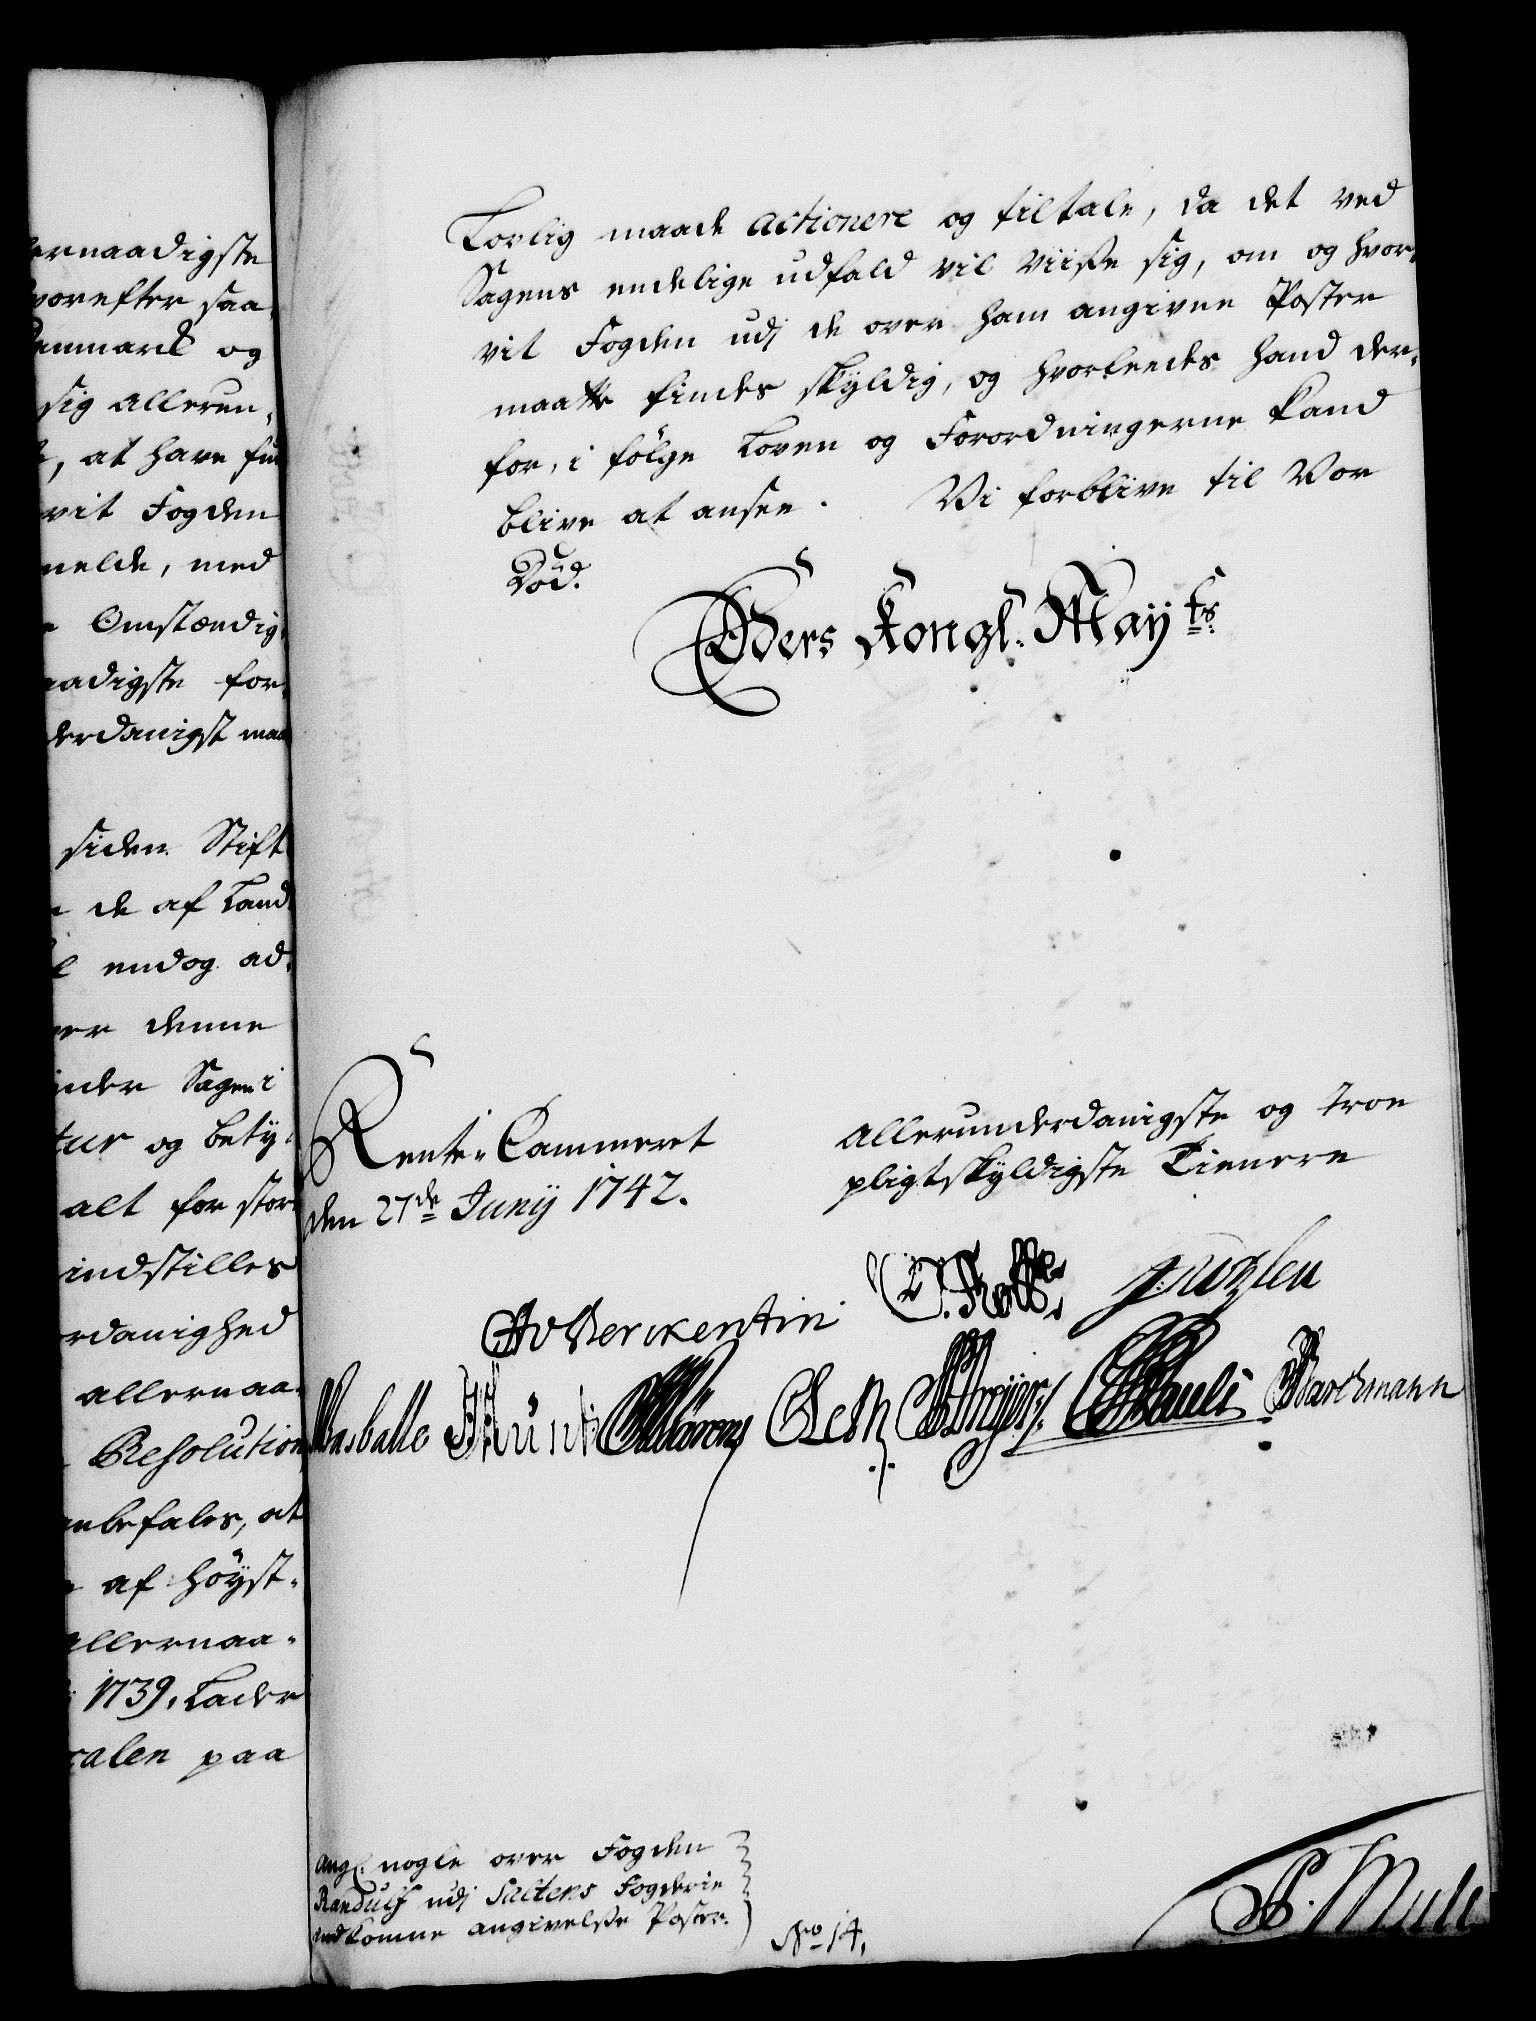 ernaadigste
vorefter saa-
enmarck og
sig allerun-
, at have fun
vit Fogden
melde, med
Omstændig-
aadigste for-
derdanigst maa
siden Stift
de af Land-
endog ad-
ver denne
inder Sagen i
tur og bety-
alt for stor
indstilles
rdanighed
allernaa-
Resolution
nbefales, at
af höyst-
allernaa-
1739, Lader
calen paa
Lovlig maade actionere og tiltale, da det ved
Sagens endelige udfald vil viise sig, om og hvor-
vit Fogden udj de over ham angivne Poster
maatte findes skyldig, og hvorleedes hand der-
for, i fölge Loven og Forordningerne kand
blive at ansee. Vi forblive til Vor
Död.
Eders Kongl. May ts
Rente-Cammeret
den 27de Junij 1742.
allerunderdanigste og troe
pligtskyldigste Tienere
CAvBerckentin
Wasballe Künt Mörens CSeth Dreyer Pauli Bartzmann
Angl. nogle over Fogden
Randulf udj Saltens Fogderie
indkomne angivelse Poster.
No 14,